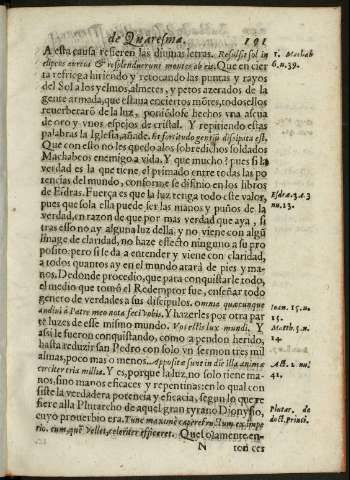 de Quaresma. 191
A esta causa refieren las diuinas letras. Refulsit sol in
clipeos aureos & resplenduerunt montes ab eis. Que en cier
ta refriega luziendo y retocando las puntas y rayos
del Sol a los yelmos, almetes, y petos azerados de la
gente armada, que estaua en ciertos mōtes, todos ellos
reuerberarō de la luz, poniēdose hechos vna ascua
de oro y vnos espejos de cristal. Y repitiendo estas
palabras la Iglesia, añade. Et fortitudo gentiū dissipata est.
Que con esto no les quedo a los sobredichos soldados
Machabeos enemigo a vida. Y que mucho? pues si la
verdad es la que tiene el primado entre todas las po
tencias del mundo, conforme se difinio en los libros
de Esdras. Fuerça es que la luz tenga todo este valor,
pues que sola ella puede ser las manos y puños de la
verdad, en razon de que por mas verdad que aya, si
tras esso no ay alguna luz della, y no viene con algū
image de claridad, no haze effecto ninguno a su pro
posito: pero si se da a entender y viene con claridad,
a todos quantos ay en el mundo atará de pies y ma-
nos. De donde procedio, que para conquistarle todo,
el medio que tomô el Redemptor fue, enseñar todo
genero de verdades a sus discipulos. Omnia quæcunque
audiui à Patre meo nota feci vobis. Y hazerles por otra par
te luzes de esse mismo mundo. Vos estis lux mundi. Y
assi le fueron conquistando, como a pendon herido,
hasta reduzir san Pedro con solo vn sermon tres mil
almas, poco mas o menos. Appositæ sunt in die illa animæ
circiter tria millia. Y es, porque la luz, no solo tiene ma-
nos, sino manos eficaces y repentinas: en lo qual con
siste la verdadera potencia y eficacia, segun lo que re
fiere alla Plutarcho de aquel gran tyrano Dionysio,
cuyo prouerbio era. Tunc maximè capere fructum ex impe
rio. cum, quæ vellet, celeriter efficeret. Que solamente en-
N tōnces
1. Machab
6. n. 39.
Esdræ. 3. A 3
nu. 13.
Ioan. 15. n.
15.
Matth. 5. n.
14.
Act. 2. nu.
41.
Plutar. de
doct. Princi.